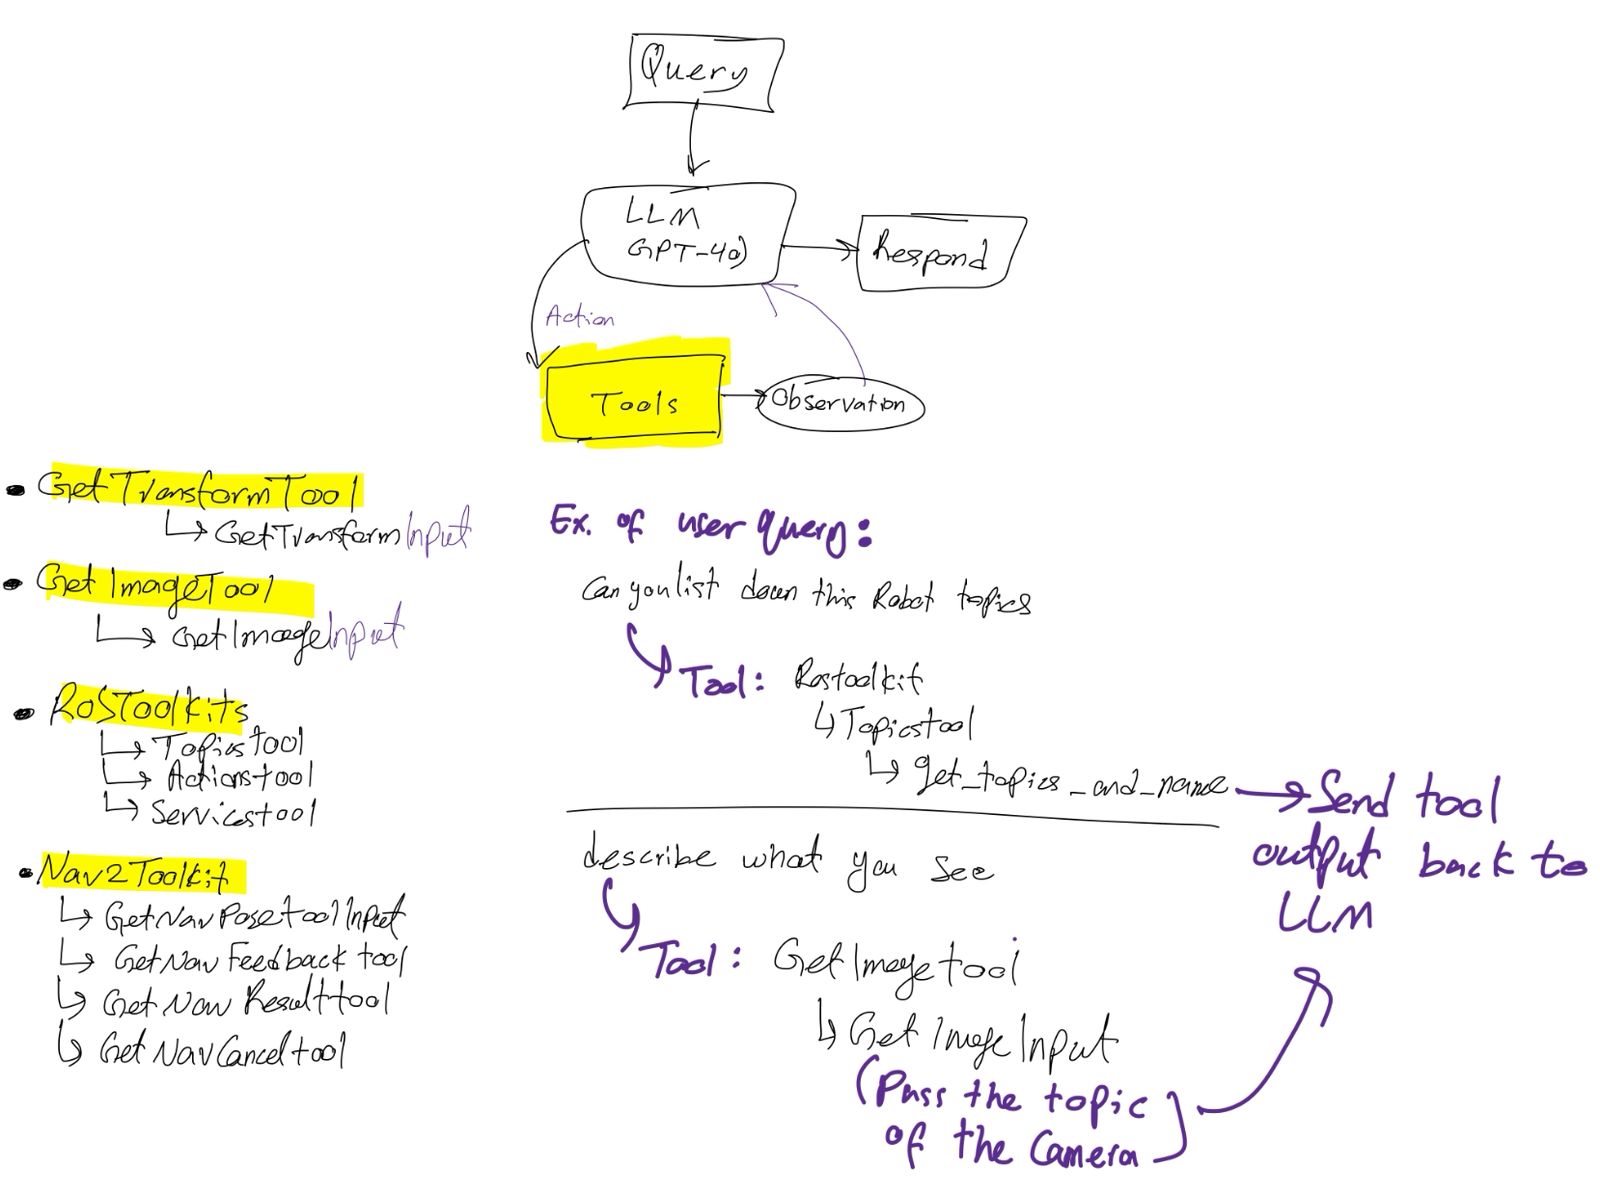 Query
LLM
GPT-4o)
Respond
Action
Tools
Observation
• GetTransformTool
↳ GetTransformInput
• GetImageTool
↳ GetImageInput
• ROSToolkits
↳ Topicstool
↳ Actionstool
↳ Servicestool
• Nav2Toolkit
↳ GetNavPosetoolInput
↳ GetNavFeedbacktool
↳ GetNavResulttool
↳ GetNavCanceltool
Ex. of user query:
Can you list down this Robot topics
Tool: Rostoolkit
↳ Topicstool
↳ get_topics_and_name
Send tool
output back to
LLM
describe what you see
Tool: GetImagetool
↳ GetImageInput
(Pass the topic
of the Camera)